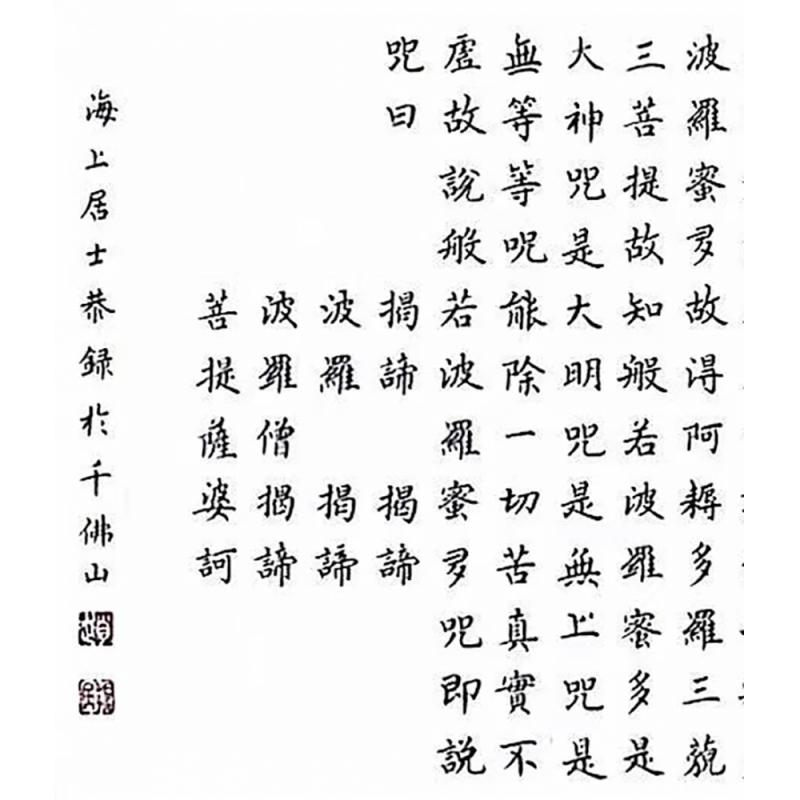 波羅蜜多故得阿耨多羅三藐
三菩提故知般若波羅蜜多是
大神咒是大明咒是無上咒是
無等等呪能除一切苦真實不
虛故說般若波羅蜜多咒即説
咒曰
揭諦 揭諦
波羅 揭諦
波羅僧揭諦
菩提薩婆訶
海上居士恭録於千佛山